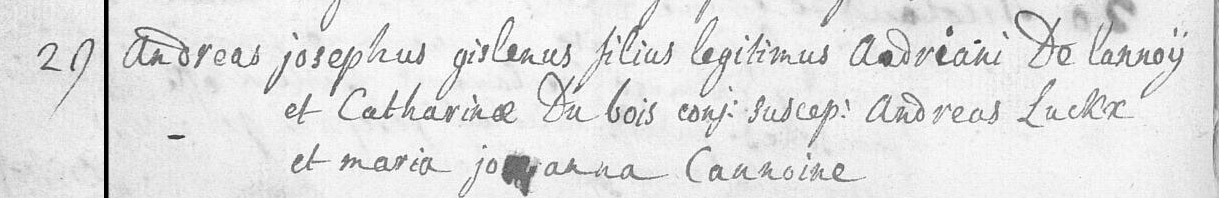 29 Andreas josephus gislenus filius legitimus Adriani De lannoÿ
et Catharinæ Du bois conj: suscep: Andreas Luckx
et maria joanna Cannoine